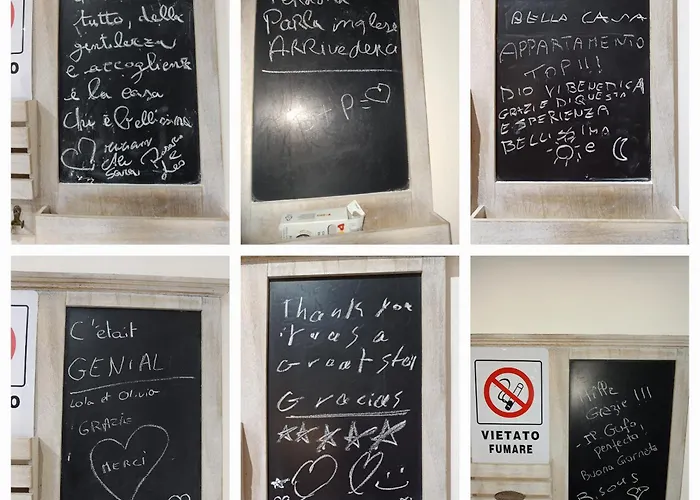 tutto, della
gentilezza
e accogliente
è la casa
che è bellissima
Miriam
Ale
Sara
Leo
Parla inglese
ARRivederci
P=
BELLA CASA
APPARTAMENTO
TOP!!!
DIO VI BENEDICA
GRAZIE DI QUESTA
ESPERIENZA
BELLISSIMA
e
C'était
GENIAL
Lola et Olivia
GRAZIE
MERCI
Thank you
it was a
Great stay
Gracias
VIETATO
FUMARE
Mille
Grazie!!!
perfecta,
Buona Giornata
Bisous